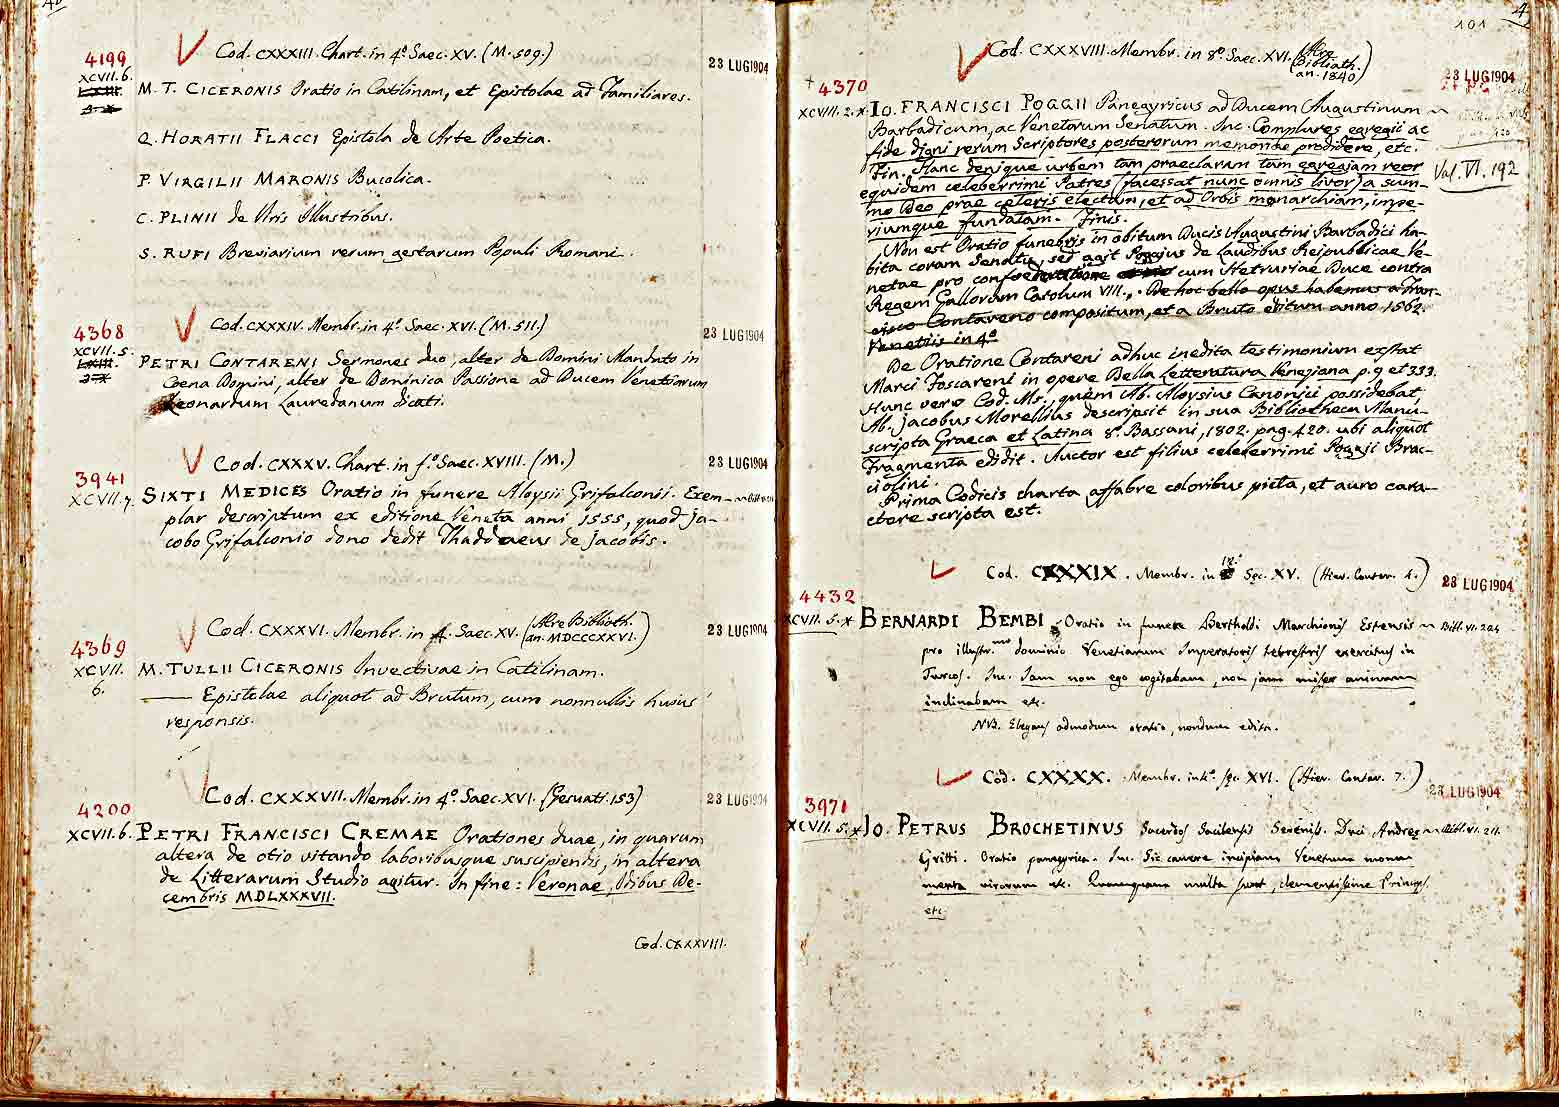 4199
XCVII. 6.
Cod. CXXXIII. Chart. in 4.º Saec. XV. (M. 509.)
23 LUG 1904
M. T. CICERONIS Oratio in Catilinam, et Epistolae ad Familiares.
Q. HORATII FLACCI Epistola de Arte Poetica.
P. VIRGILII MARONIS Bucolica.
C. PLINII de Viris Illustribus.
S. RUFI Breviarium rerum gestarum Populi Romani.
4368
XCVII. 5.
Cod. CXXXIV. Membr. in 4.º Saec. XVI. (M. 511.)
23 LUG 1904
PETRI CONTARENI Sermones duo, alter de Domini Mandato in
Coena Domini, alter de Dominica Passione ad Ducem Venetiarum
Leonardum Lauredanum dicati.
3941
XCVII. 7.
Cod. CXXXV. Chart. in f.º Saec. XVIII. (M.)
23 LUG 1904
SIXTI MEDICES Oratio in funere Aloysii Grifalconii. Exem-
plar descriptum ex editione Veneta anni 1555, quod Ja-
cobo Grifalconio dono dedit Thaddaeus de Jacobis.
4369
XCVII.
6.
Cod. CXXXVI. Membr. in 4. Saec. XV. (Aere Biblioth.
an. MDCCCXXVI.)
23 LUG 1904
M. TULLII CICERONIS Invectivae in Catilinam.
—— Epistolae aliquot ad Brutum, cum nonnullis huius
responsis.
4200
XCVII. 6.
Cod. CXXXVII. Membr. in 4.º Saec. XVI. (Gesuati. 153)
23 LUG 1904
PETRI FRANCISCI CREMAE Orationes duae, in quarum
altera de otio vitando laboribusque suscipiendis, in altera
de Litterarum Studio agitur. In fine: Veronae, Idibus De-
cembris MDLXXXVII.
Cod. CXXXVIII.
101
+ 4370
XCVIII. 2. x
Cod. CXXXVIII. Membr. in 8.º Saec. XVI. (Aere
Biblioth.
an. 1840)
23 LUG 1904
IO. FRANCISCI POGGII Panegyricus ad Ducem Augustinum
Barbadicum, ac Venetorum Senatum. Inc. Complures egregii ac
fide digni rerum Scriptores posterorum memoriae prodidere, etc.
Fin. Hanc denique urbem tam praeclaram tam egregiam reor
equidem celeberrimi Patres (facessat nunc omnis livor) a sum-
mo Deo prae celeris electam, et ad Orbis monarchiam, impe-
riumque fundatam. Finis.
Val. VI. 192
Non est Oratio funebris in obitum Ducis Augustini Barbadici ha-
bita coram Senatu, sed agit Poggius de Laudibus Reipubblicae Ve-
netae pro confoederatione cum Hetruriae Duce contra
Regem Gallorum Carolum VIII. De hoc bello opus habemus a Fran-
cisco Contareno compositum, et a Bruto editum anno 1562.
Venetiis in 4º
De Oratione Contareni adhuc inedita testimonium exstat
Marci Foscareni in opere Della Letteratura Veneziana p. 9 et 333.
Hunc vero Cod. Ms., quem Ab. Aloysius Canonici possidebat,
Ab. Jacobus Morellius descripsit in sua Bibliotheca Manu-
scripta Graeca et Latina 8.º Bassani, 1802. pag. 420. ubi aliquot
Fragmenta edidit. Auctor est filius celeberrimi Poggii Brac-
ciolini.
Prima Codicis charta affabre coloribus picta, et auro cara-
ctere scripta est.
4432
XCVII. 5. x
Cod. CXXXIX. Membr. in 18.º Sęc. XV. (Hier. Contar. 4.)
23 LUG 1904
BERNARDI BEMBI Oratio in funere Bertholdi Marchionis Estensis
Bibl. VI. 204
pro illustr.mo dominio Venetiarum Imperatoris terrestris exercitus in
Turcos. Inc. Iam non ego cogitabam, non jam miser animum
inclinabam etc.
NB. Elegans admodum oratio, nondum edita.
3971
XCVII. 5. x
Cod. CXXXX. Membr. in 4.º sęc. XVI. (Hier. Contar. 7.)
23 LUG 1904
IO. PETRUS BROCHETINUS Sacerdos Sacilensis Sereniss. Duci Andreę
Bibl. VI. 211.
Gritti. Oratio panegyrica. Inc. Sic canere incipiam Venetum monu
menta virorum etc. Quamquam multa sunt, clementissime Princeps.
etc.